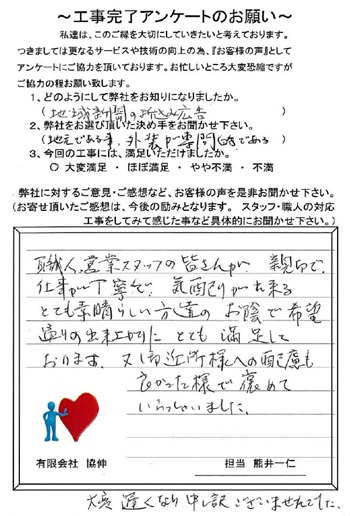 ～工事完了アンケートのお願い～
私達は、このご縁を大切にしていきたいと考えております。
つきましては更なるサービスや技術の向上の為、『お客様の声』として
アンケートにご協力を頂いております。お忙しいところ大変恐縮ですが
ご協力の程お願い致します。
1、どのようにして弊社をお知りになりましたか。
(地域新聞の折込み広告)
2、弊社をお選び頂いた決め手をお聞かせ下さい。
(地元である事、外装が専門である)
3、今回の工事には、満足いただけましたか。
○ 大変満足 ・ ほぼ満足 ・ やや不満 ・ 不満
弊社に対するご意見・ご感想など、お客様の声を是非お聞かせ下さい。
(お寄せ頂いたご感想は、今後の励みとなります。 スタッフ・職人の対応
工事をしてみて感じた事など具体的にお聞かせ下さい。)
職人、営業スタッフの皆さんが、親切で、
仕事が丁寧で、気配りが出来る
とても素晴らしい方達のお陰で希望
通りの出来上がりにとても満足して
おります。又、御近所様への配慮も
良かった様で褒めて
いらっしゃいました。
有限会社 協伸
担当 熊井一仁
大変遅くなり申し訳ございませんでした。